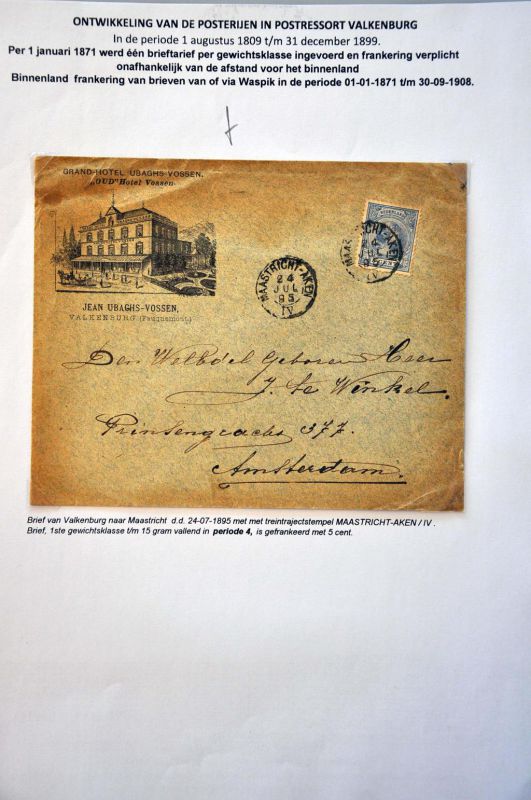 ONTWIKKELING VAN DE POSTERIJEN IN POSTRESSORT VALKENBURG
In de periode 1 augustus 1809 t/m 31 december 1899.
Per 1 januari 1871 werd één brieftarief per gewichtsklasse ingevoerd en frankering verplicht
onafhankelijk van de afstand voor het binnenland
Binnenland frankering van brieven van of via Waspik in de periode 01-01-1871 t/m 30-09-1908.
GRAND-HOTEL UBAGHS-VOSSEN,
„OUD" Hotel Vossen.
JEAN UBAGHS-VOSSEN,
VALKENBURG (Fauquemont).
MAASTRICHT-AKEN
24
JUL
95
IV
NEDERLAND
MAASTRICHT-AKEN
24
JUL
95
IV
Den WelEdel Geboren Heer
J. te Winkel.
Prinsengracht 377.
Amsterdam.
Brief van Valkenburg naar Maastricht d.d. 24-07-1895 met met treintrajectstempel MAASTRICHT-AKEN / IV .
Brief, 1ste gewichtsklasse t/m 15 gram vallend in periode 4, is gefrankeerd met 5 cent.